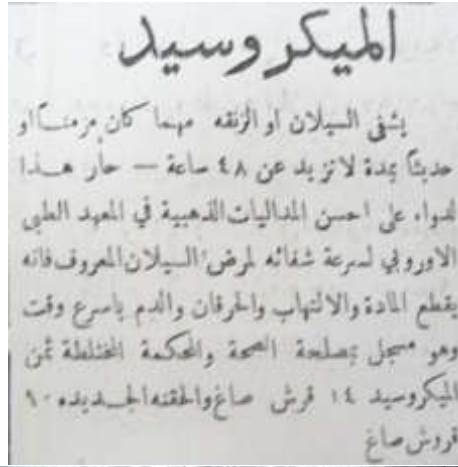 الميكروسيد
يشفي السيلان او الزنقه مهما كان مزمناً او
حديثاً بمدة لاتزيد عن ٤٨ ساعة — حاز هــذا
لدواء على احسن المداليات الذهبية في المعهد الطبي
الاوروبي لسرعة شفائه لمرض السيلان المعروف فانه
يقطع المادة والالتهاب والحرقان والدم باسرع وقت
وهو مسجل بمصلحة الصحة والمحكمة المختلطة ثمن
الميكروسيد ١٤ قرش صاغ والحقنه الجــديده ١٠
قروش صاغ